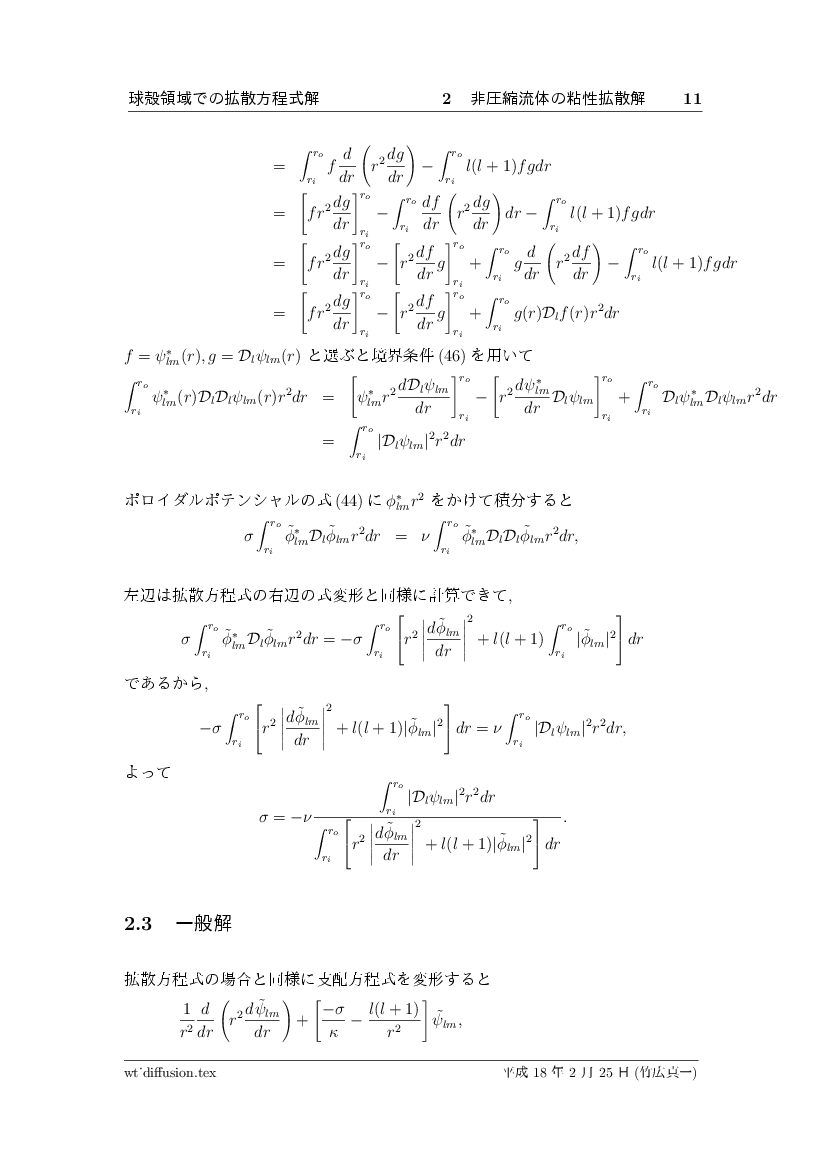 球殻領域での拡散方程式解 2 非圧縮流体の粘性拡散解 11
= \int_{r_i}^{r_o} f \frac{d}{dr} \left( r^2 \frac{dg}{dr} \right) - \int_{r_i}^{r_o} l(l+1)fgdr
= \left[ fr^2 \frac{dg}{dr} \right]_{r_i}^{r_o} - \int_{r_i}^{r_o} \frac{df}{dr} \left( r^2 \frac{dg}{dr} \right) dr - \int_{r_i}^{r_o} l(l+1)fgdr
= \left[ fr^2 \frac{dg}{dr} \right]_{r_i}^{r_o} - \left[ r^2 \frac{df}{dr} g \right]_{r_i}^{r_o} + \int_{r_i}^{r_o} g \frac{d}{dr} \left( r^2 \frac{df}{dr} \right) - \int_{r_i}^{r_o} l(l+1)fgdr
= \left[ fr^2 \frac{dg}{dr} \right]_{r_i}^{r_o} - \left[ r^2 \frac{df}{dr} g \right]_{r_i}^{r_o} + \int_{r_i}^{r_o} g(r)\mathcal{D}_l f(r)r^2dr
f = \psi_{lm}^*(r), g = \mathcal{D}_l\psi_{lm}(r) と選ぶと境界条件 (46) を用いて
\int_{r_i}^{r_o} \psi_{lm}^*(r)\mathcal{D}_l\mathcal{D}_l\psi_{lm}(r)r^2dr = \left[ \psi_{lm}^* r^2 \frac{d\mathcal{D}_l\psi_{lm}}{dr} \right]_{r_i}^{r_o} - \left[ r^2 \frac{d\psi_{lm}^*}{dr} \mathcal{D}_l\psi_{lm} \right]_{r_i}^{r_o} + \int_{r_i}^{r_o} \mathcal{D}_l\psi_{lm}^*\mathcal{D}_l\psi_{lm}r^2dr
= \int_{r_i}^{r_o} |\mathcal{D}_l\psi_{lm}|^2r^2dr
ポロイダルポテンシャルの式 (44) に \phi_{lm}^*r^2 をかけて積分すると
\sigma \int_{r_i}^{r_o} \tilde{\phi}_{lm}^*\mathcal{D}_l\tilde{\phi}_{lm}r^2dr = \nu \int_{r_i}^{r_o} \tilde{\phi}_{lm}^*\mathcal{D}_l\mathcal{D}_l\tilde{\phi}_{lm}r^2dr,
左辺は拡散方程式の右辺の式変形と同様に計算できて,
\sigma \int_{r_i}^{r_o} \tilde{\phi}_{lm}^*\mathcal{D}_l\tilde{\phi}_{lm}r^2dr = -\sigma \int_{r_i}^{r_o} \left[ r^2 \left| \frac{d\tilde{\phi}_{lm}}{dr} \right|^2 + l(l+1) \int_{r_i}^{r_o} |\tilde{\phi}_{lm}|^2 \right] dr
であるから,
-\sigma \int_{r_i}^{r_o} \left[ r^2 \left| \frac{d\tilde{\phi}_{lm}}{dr} \right|^2 + l(l+1)|\tilde{\phi}_{lm}|^2 \right] dr = \nu \int_{r_i}^{r_o} |\mathcal{D}_l\psi_{lm}|^2r^2dr,
よって
\sigma = -\nu \frac{\int_{r_i}^{r_o} |\mathcal{D}_l\psi_{lm}|^2r^2dr}{\int_{r_i}^{r_o} \left[ r^2 \left| \frac{d\tilde{\phi}_{lm}}{dr} \right|^2 + l(l+1)|\tilde{\phi}_{lm}|^2 \right] dr}.
2.3 一般解
拡散方程式の場合と同様に支配方程式を変形すると
\frac{1}{r^2} \frac{d}{dr} \left( r^2 \frac{d\tilde{\psi}_{lm}}{dr} \right) + \left[ \frac{-\sigma}{\kappa} - \frac{l(l+1)}{r^2} \right] \tilde{\psi}_{lm},
wt˙diffusion.tex 平成 18 年 2 月 25 日 (竹広真一)